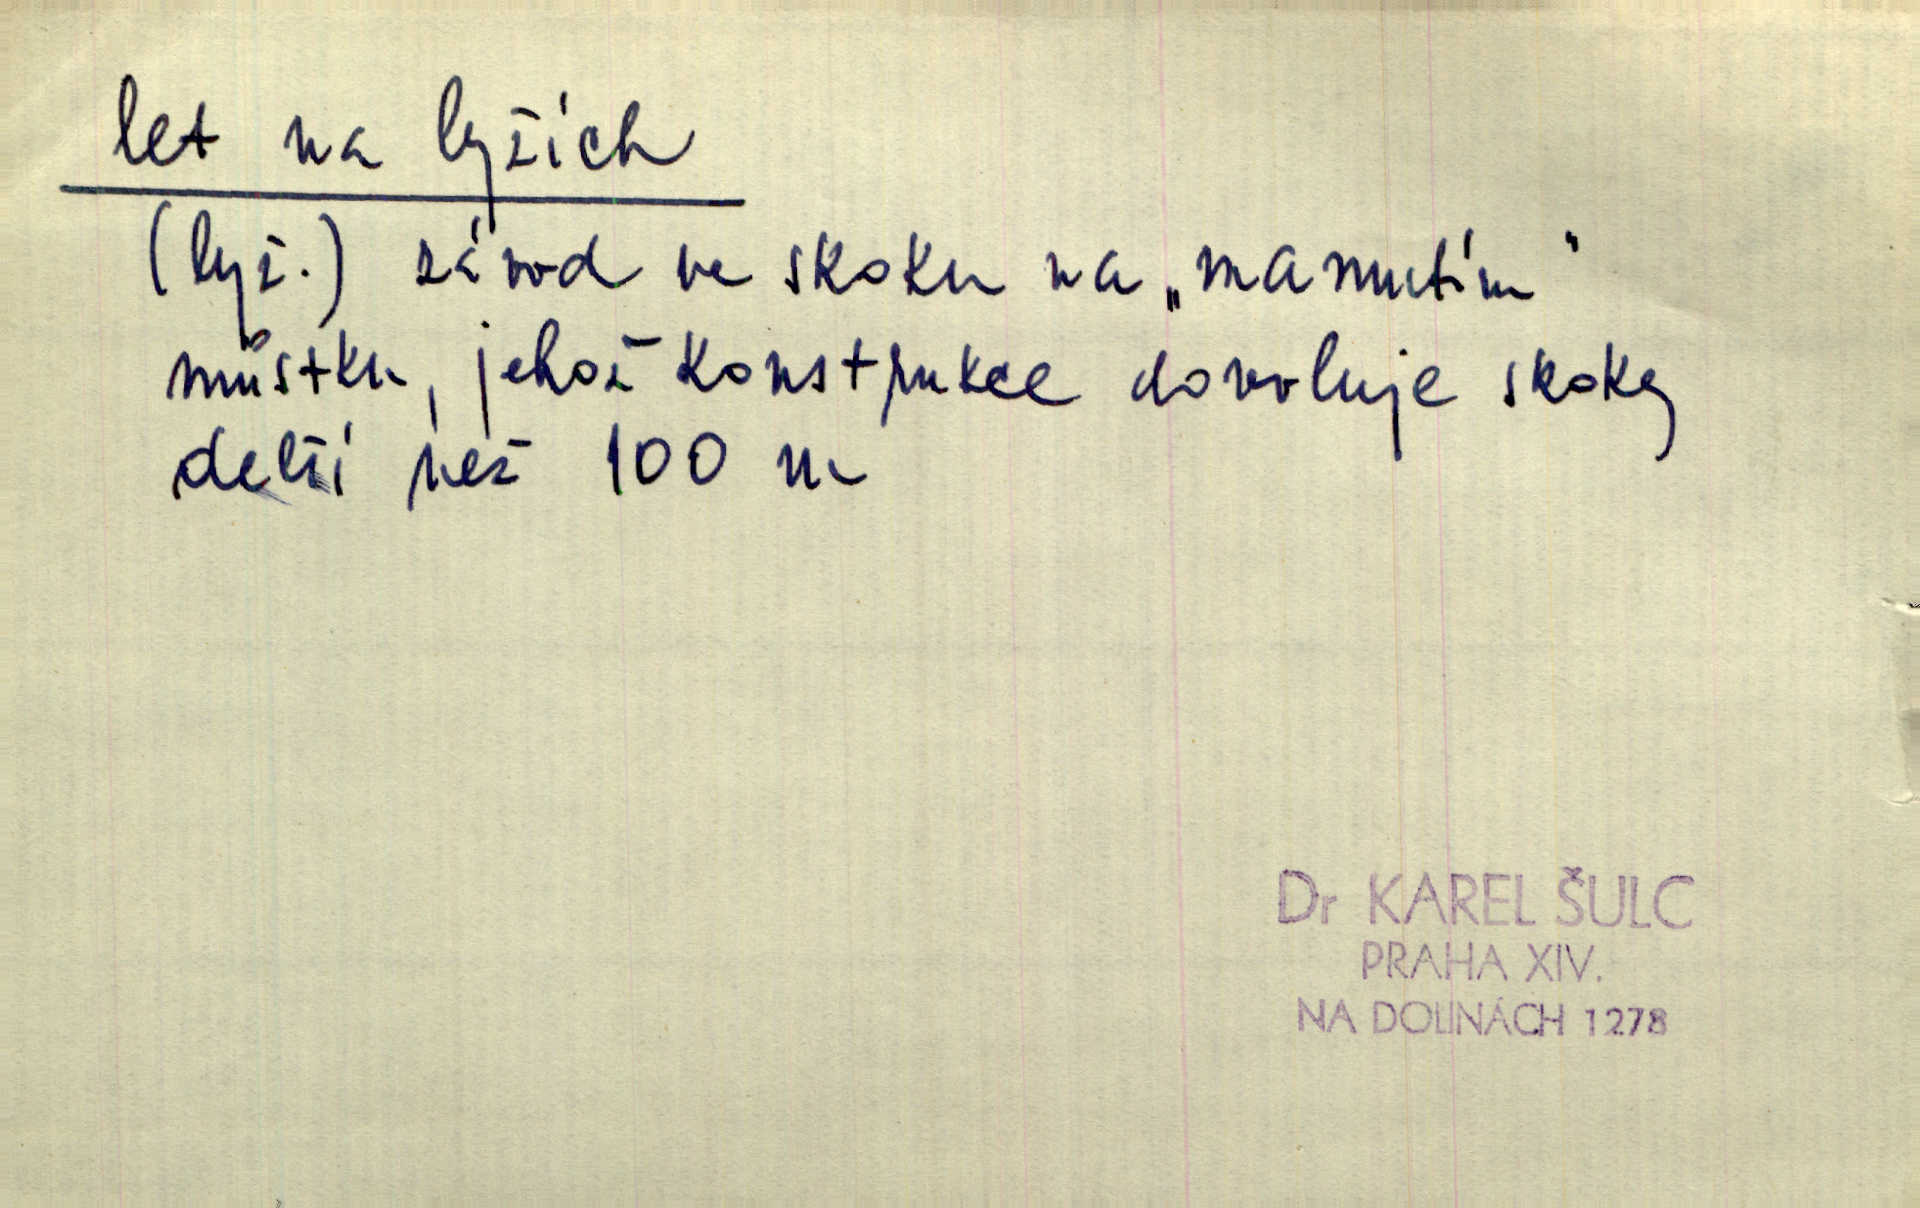 let na lyžích
(lyž.) závod ve skoku na „mamutím“
můstku, jehož konstrukce dovoluje skoky
delší než 100 m
Dr KAREL ŠULC
PRAHA XIV.
NA DOLINÁCH 1278